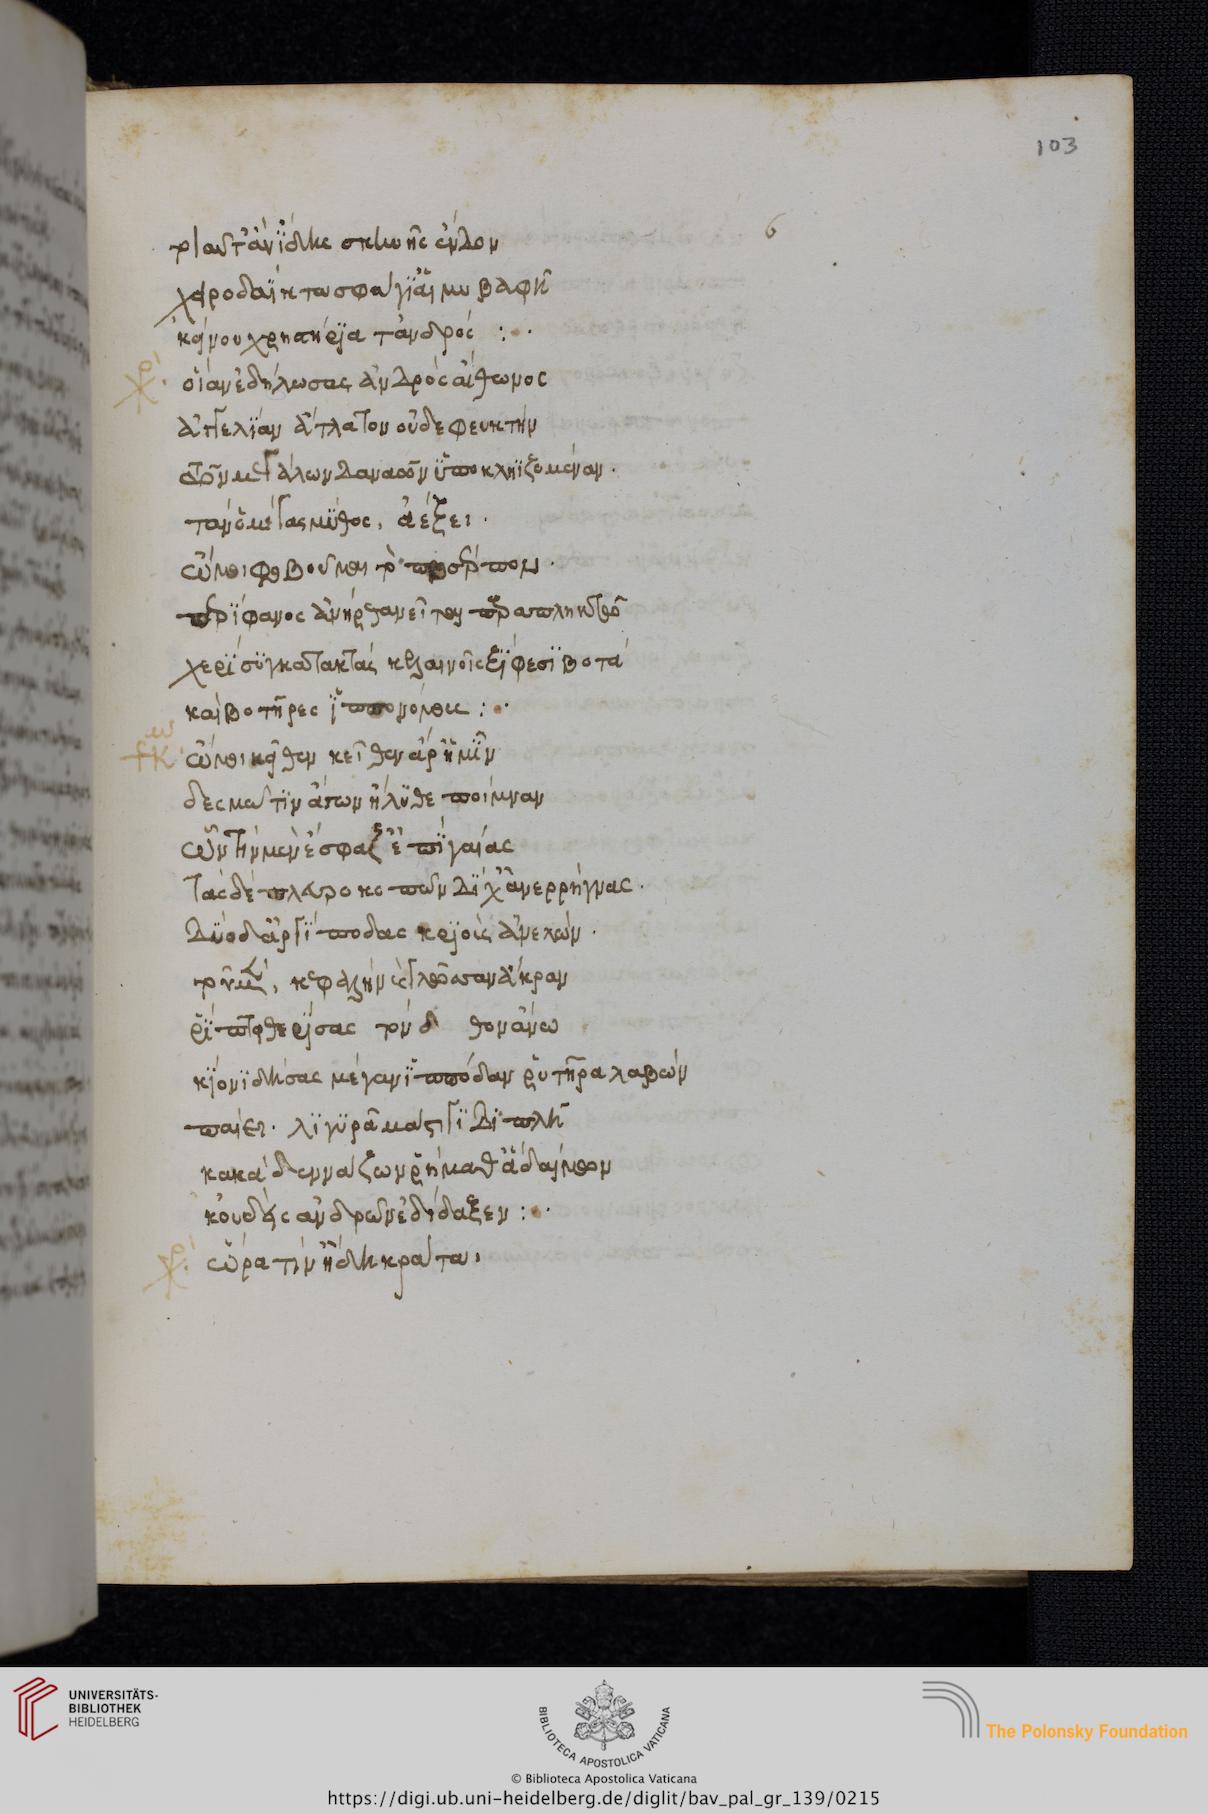 103
6
τοιαῦτ' ἂν ἴδοις σκηνῆς ἔνδον
χειροδάϊκτα σφάγι' αἱμοβαφῆ
κείνου χρηστήρια τἀνδρός :·
χο οἵαν ἐδήλωσας ἀνδρὸς αἴθωνος
ἀγγελίαν ἄτλατον οὐδὲ φευκτὴν
τῶν μεγάλων δαναῶν ὕπο κληϊζομέναν·
τὰν ὁ μέγας μῦθος, ἀέξει·
ὤμοι φοβοῦμαι τὸ προσέρπον·
περίφαντος ἁνὴρ θανεῖται παραπλήκτῳ
χερὶ συγκατακτὰς κελαινοῖς ξίφεσι βοτὰ
καὶ βοτῆρας ἱππονόμους :·
τκ ὤμοι κεῖθεν κεῖθεν ἄρ' ἡμῖν
δεσμῶτιν ἄγων ἤλυθε ποίμναν
ὧν τὴν μὲν ἔσφαξ' ἐπὶ γαίας
τὰς δὲ πλευροκοπῶν δίχ' ἀνερρήγνας·
δύο δ' ἀργίποδας κριοὺς ἀνελών·
τοῦ μὲν, κεφαλὴν καὶ γλῶσσαν ἄκραν
ῥίπτει θερίσας τὸν δ' ὀρθὸν ἄνω
κίονι δήσας μέγαν ἱπποδέτην ῥυτῆρα λαβὼν
παίει· λιγυρᾷ μάστιγι διπλῇ
κακὰ δεννάζων ῥήμαθ' ἃ δαίμων
κοὐδεὶς ἀνδρῶν ἐδίδαξεν :·
χο ὥρα τιν' ἤδη κρᾶτα·
UNIVERSITÄTS-
BIBLIOTHEK
HEIDELBERG
BIBLIOTECA APOSTOLICA VATICANA
The Polonsky Foundation
© Biblioteca Apostolica Vaticana
https://digi.ub.uni-heidelberg.de/diglit/bav_pal_gr_139/0215